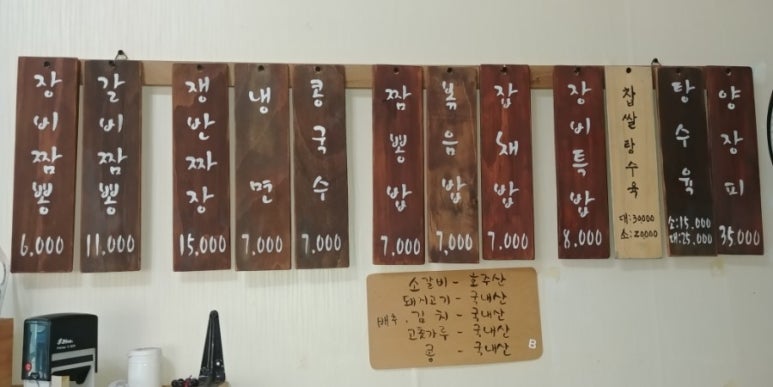 장비짬뽕
6,000
갈비짬뽕
11,000
쟁반짜장
15,000
냉면
7,000
콩국수
7,000
짬뽕밥
7,000
볶음밥
7,000
잡채밥
7,000
장비특밥
8,000
찹쌀탕수육
대:30000
소:20000
탕수육
소:15.000
대:25.000
양장피
35.000
소갈비 - 호주산
돼지고기 - 국내산
배추, 김치 - 국내산
고춧가루 - 국내산
콩 - 국내산
B